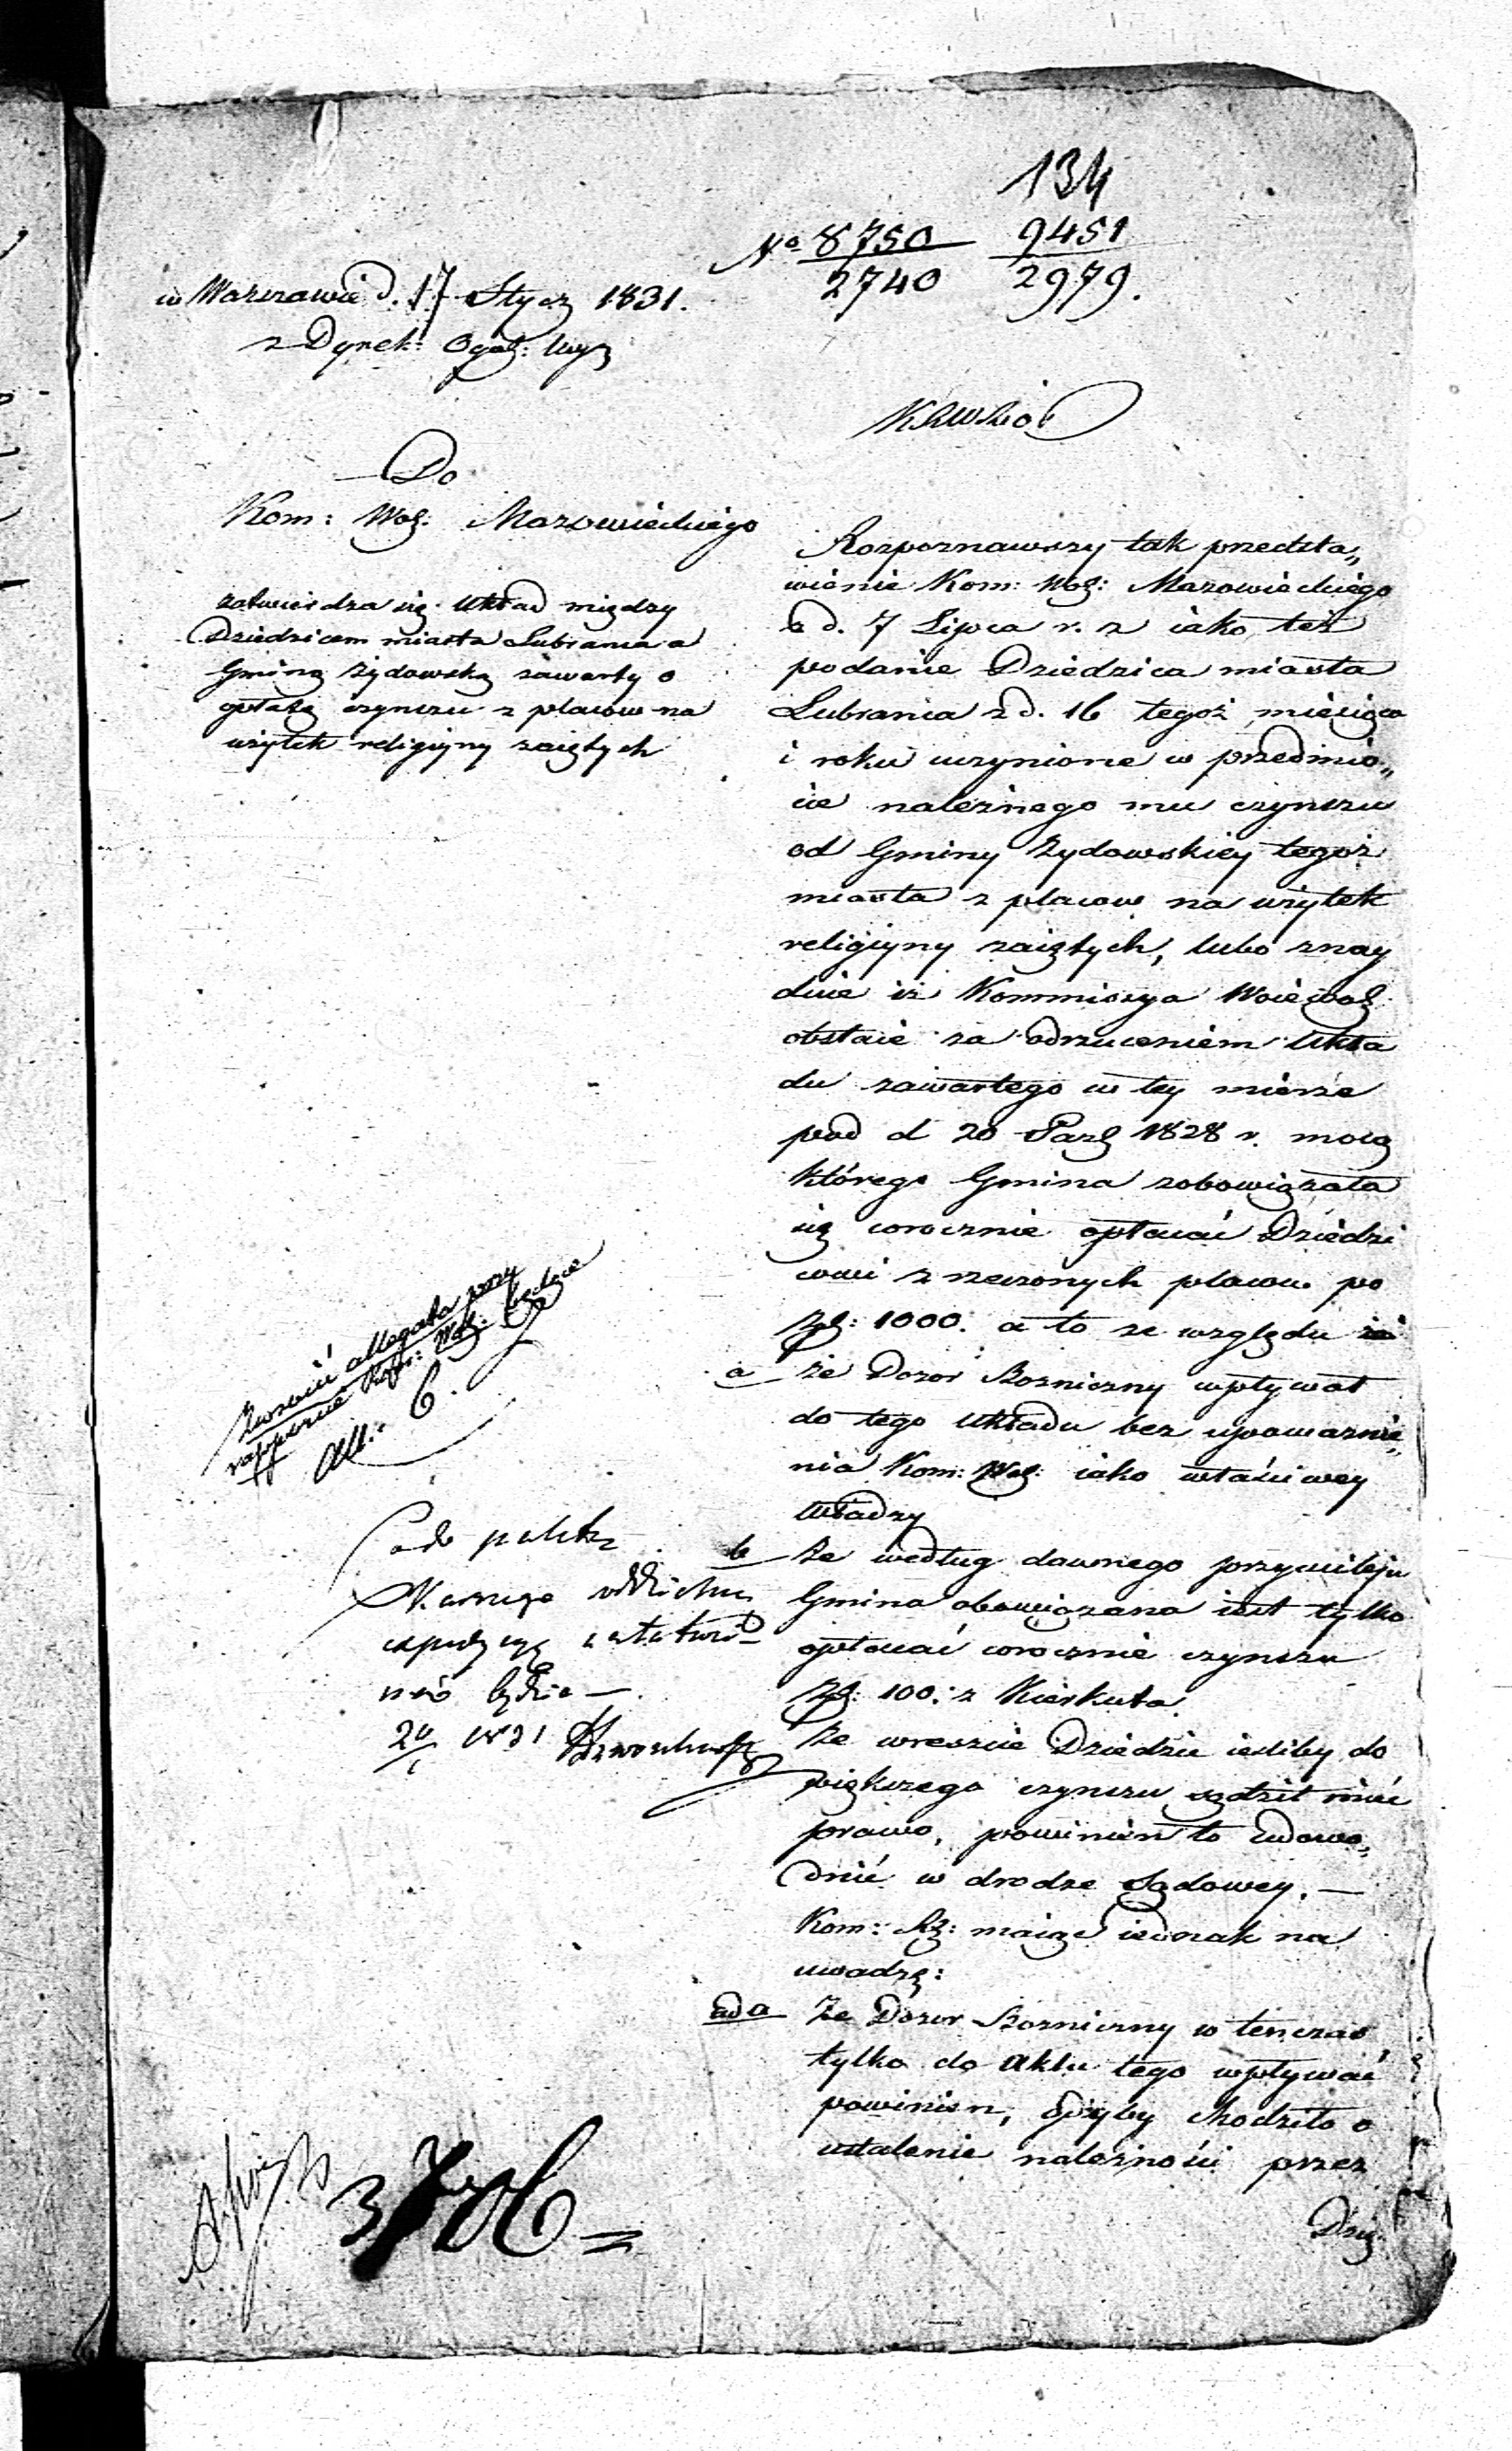 134
No 8750 9451
2740 2979.
w Warszawie d. 17 Stycz 1831.
z Dyrek: Ogól:
KRWRiOP
Do
Kom: Woj: Mazowieckiego
zatwierdza się Układ między
Dziedzicem miasta Lubrania a
Gminą żydowską zawarty o
opłatę czynszu z placow na
użytek religijny zaiętych
Rozpoznawszy tak przedsta„
wienie Kom: Woj: Mazowieckiego
z d. 7 Lipca r. z iako też
podanie Dziedzica miasta
Lubrania z d. 16 tegoż miesiąca
i roku uczynione w przedmio„
cie należnego mu czynszu
od Gminy Żydowskiey tegoż
miasta z placow na użytek
religijny zaiętych, lubo znay
duie iż Kommissya Woiewodz
obstaie za odrzuceniem Ukła
du zawartego w tey mierze
pod d 20 Paźdz 1828 r. mocą
którego Gmina zobowiązała
się corocznie opłacać Dziedzi
cowi z rzeczonych placow po
Złp: 1000. a to ze względu
a że Dozór Bozniczny wpływał
do tego Układu bez upoważnie„
nia Kom: Woj: iako właściwey
Władzy
b że według dawnego przywileju
Gmina obowiązana iest tylko
opłacać corocznie czynszu
Złp: 100. z Kierkuta.
że wreszcie Dziedzic ieśliby do
większego czynszu sądził mieć
prawo, powinien to udowo„
dnić w drodze Sądowey. —
Kom: Rz: maiąc iednak na
uwadze:
ad a Że Dozór Bozniczny w tenczas
tylko do Aktu tego wpływać
powinien, gdyby chodziło o
ustalenie należności przez
Dzie
Zwrócić allegata przy
rapporcie Kom: Woj: będące
All: 6.
1831